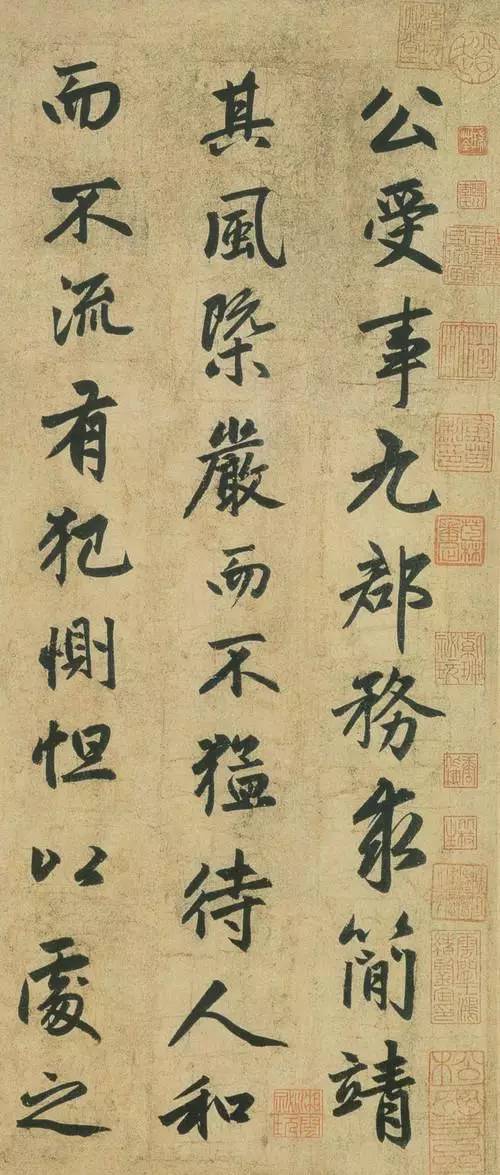 公受事九郡務求簡靖
其風槩嚴而不猛待人和
而不流有犯惻怛以處之